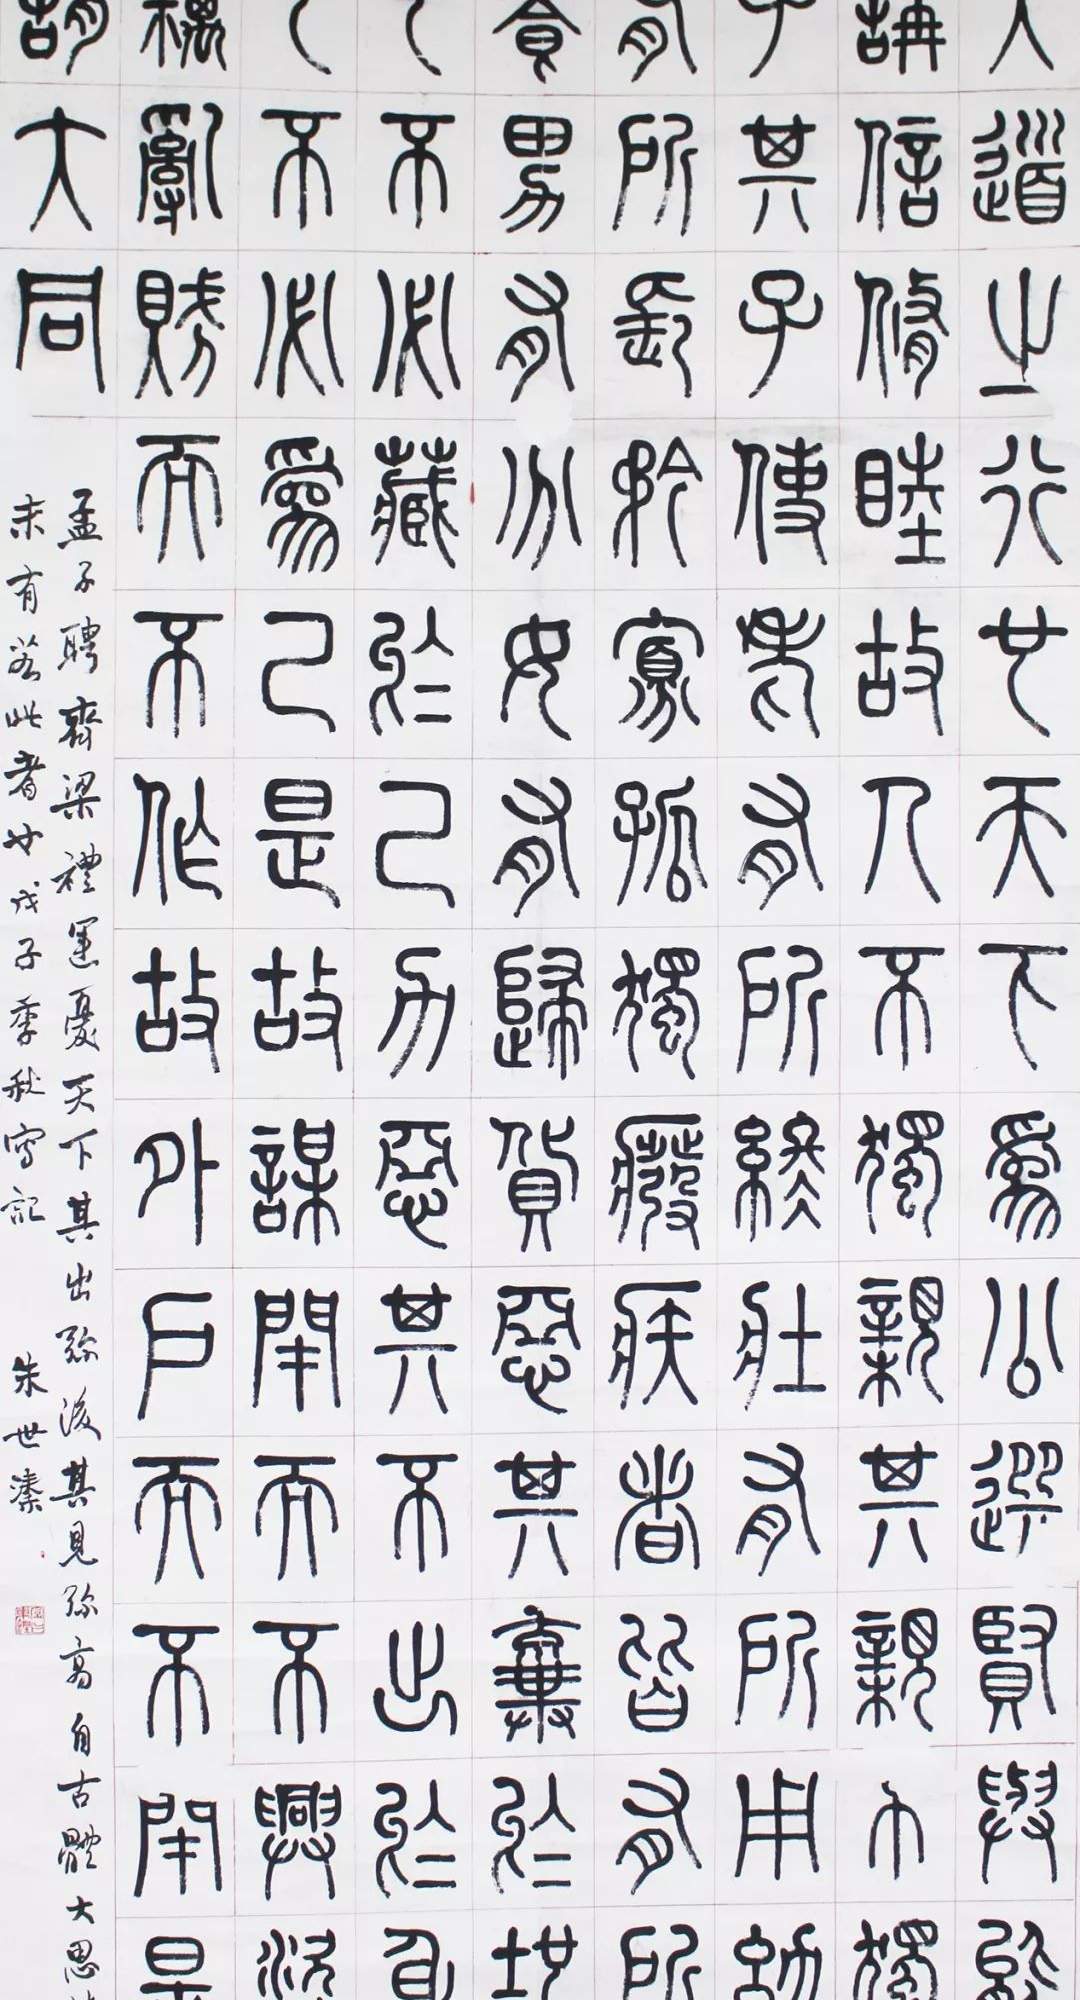 大道之行也天下爲公選賢與能
講信脩睦故人不獨親其親不獨
子其子使老有所終壯有所用幼
有所長矜寡孤獨廢疾者皆有所
養男有分女有歸貨惡其棄於地
也不必藏於己力惡其不出於身
也不必爲己是故謀閉而不興盜
竊亂賊而不作故外戶而不閉是
謂大同
孟子聘齊梁禮運憂天下其出弥後其見弥高自古體大思
未有若此者也戊子季秋寫記 朱世溱